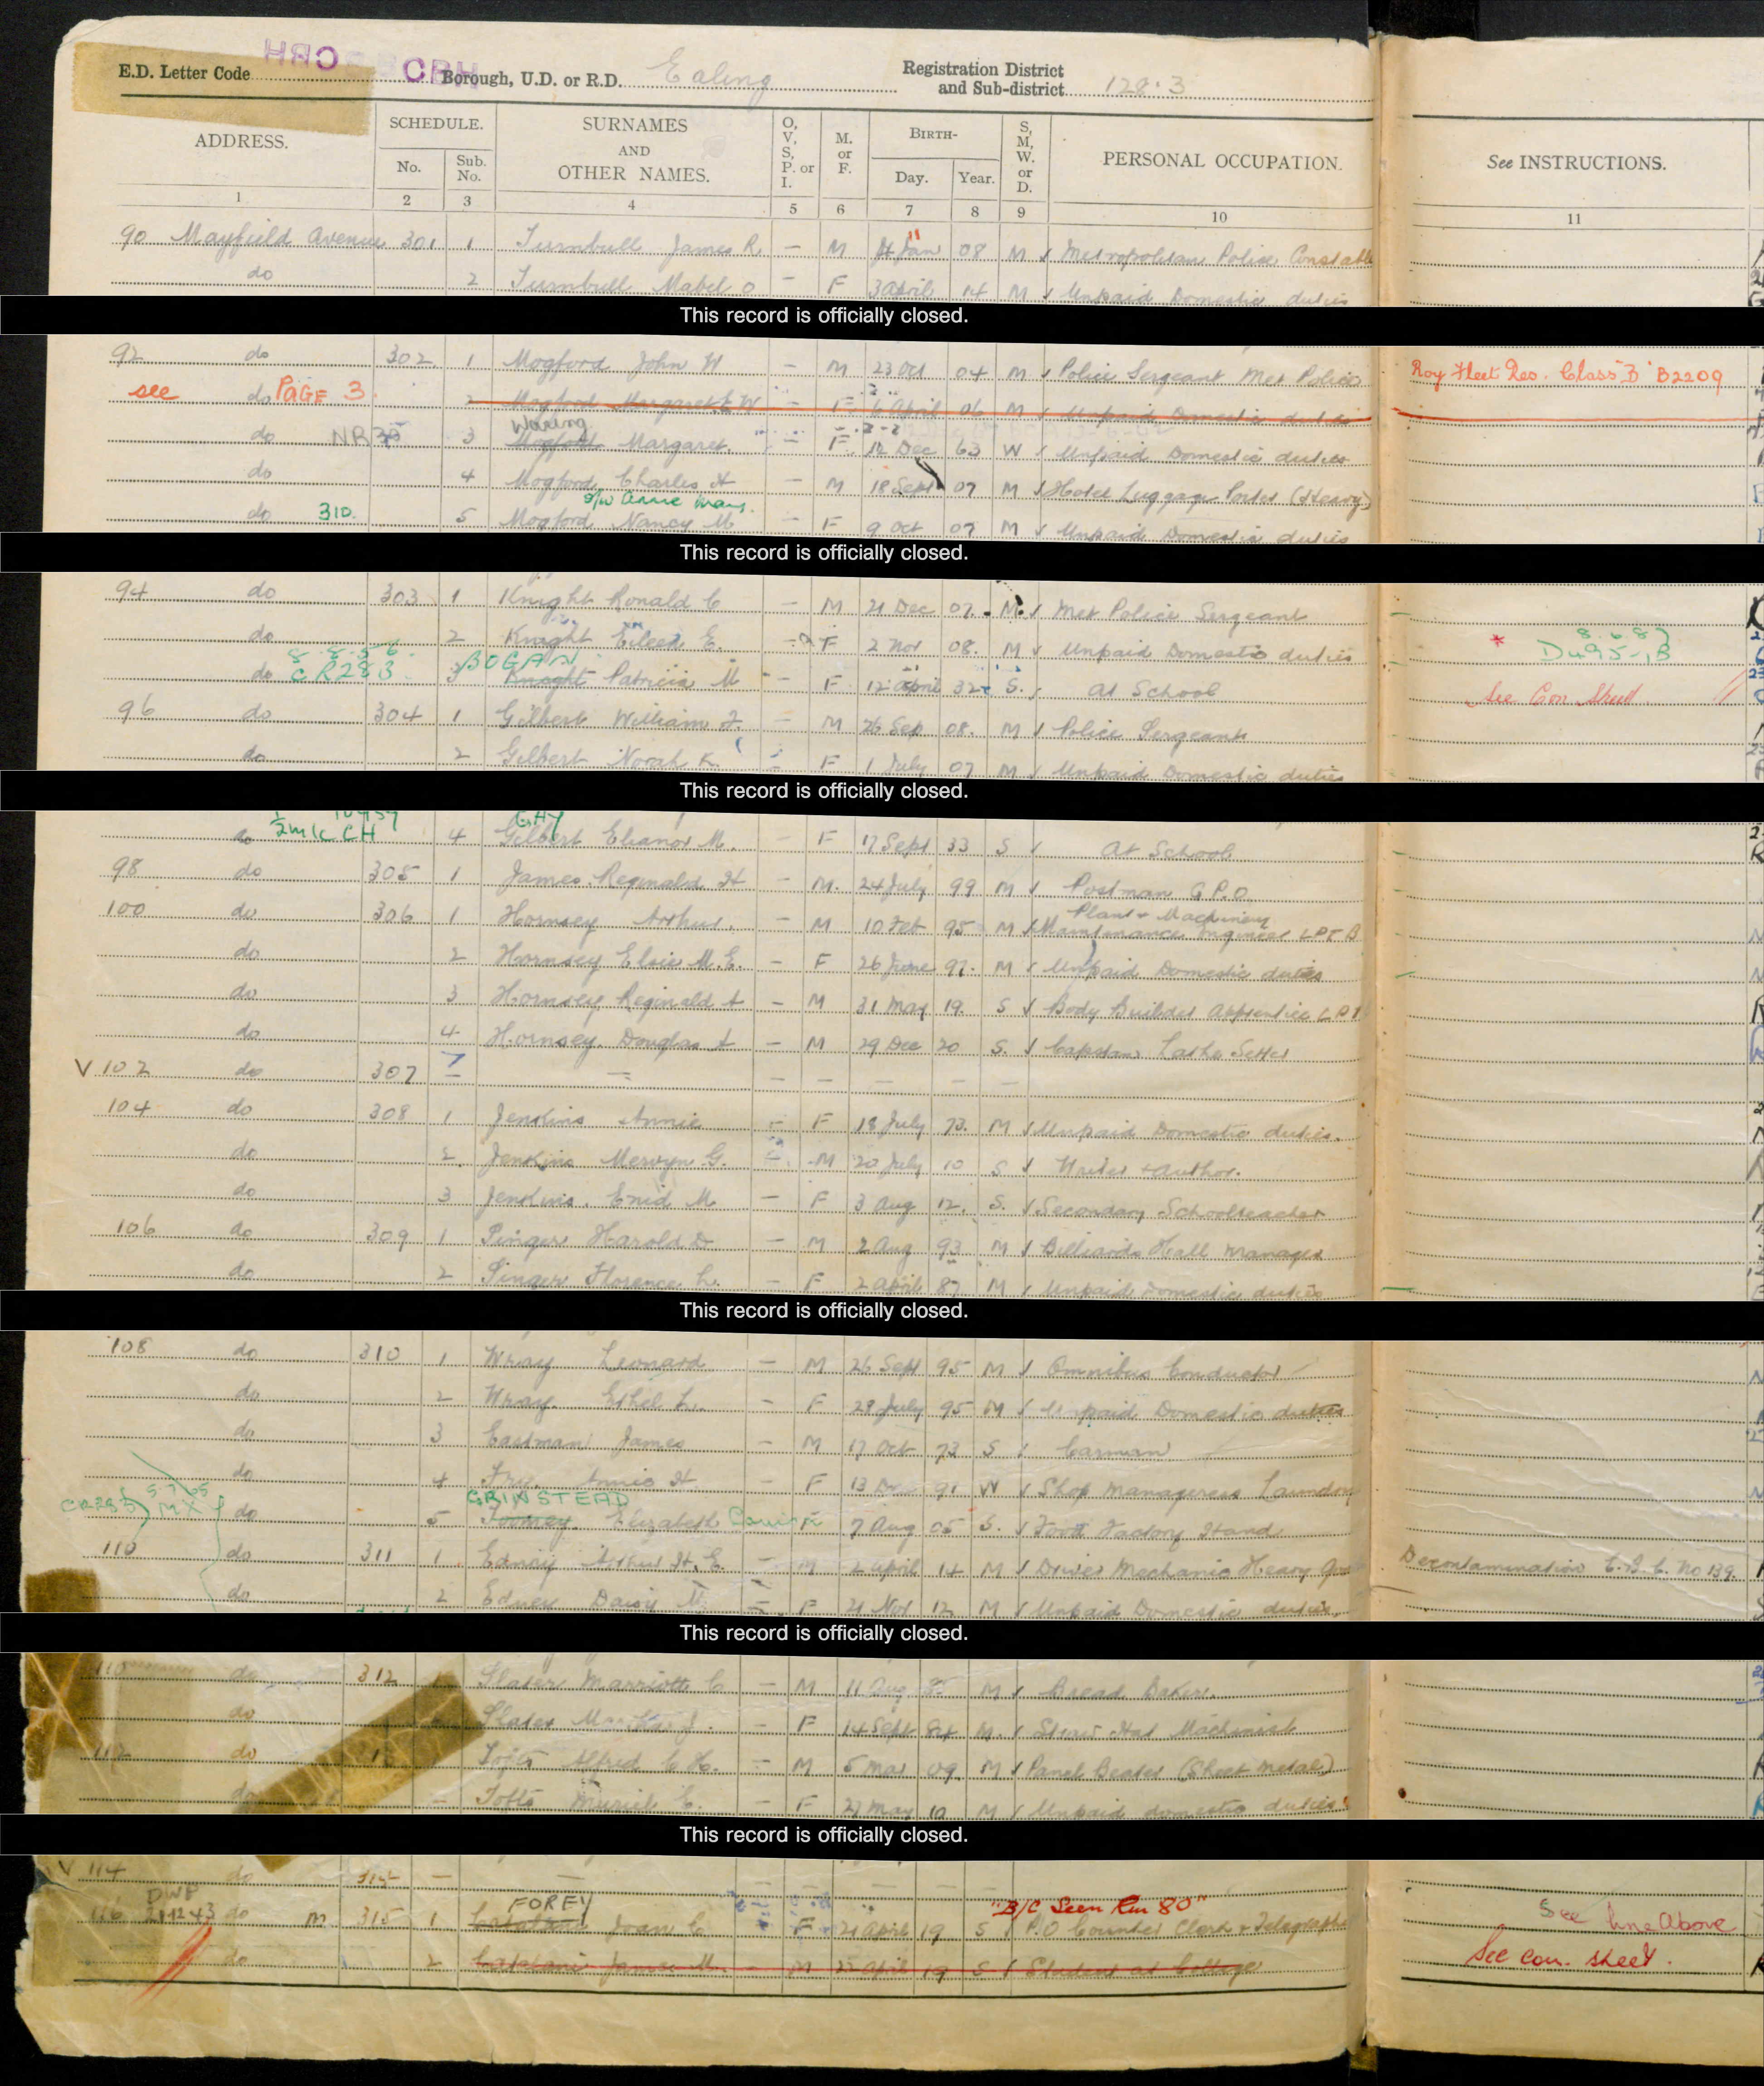 E.D. Letter Code CRH Borough, U.D. or R.D. Ealing Registration District and Sub-district 128.3
ADDRESS. SCHEDULE. No. Sub. No. SURNAMES AND OTHER NAMES. O, V, S, P. or I. M. or F. BIRTH- Day. Year. S, M, W. or D. PERSONAL OCCUPATION. See INSTRUCTIONS.
1 2 3 4 5 6 7 8 9 10 11
90 Mayfield Avenue 301 1 Turnbull James R. – M 11 Jan 08 M Metropolitan Police Constable
do 2 Turnbull Mabel O – F 3 April 14 M Unpaid Domestic duties
This record is officially closed.
92 do 302 1 Mogford John W – M 23 Oct 04 M Police Sergeant Met Police Roy Fleet Res. Class B B2209
see do PAGE 3. 2 Mogford Margaret E W – F 6 April 06 M Unpaid Domestic duties
do NR 3 Waring Mogford Margaret. – F 12 Dec 63 W Unpaid Domestic duties
do 4 Mogford Charles H – M 18 Sept 07 M Hotel Luggage Porter (Heavy)
do 310. 5 Mogford Nancy M – F 9 Oct 07 M Unpaid Domestic duties
This record is officially closed.
94 do 303 1 Knight Ronald C – M 21 Dec 07 M Met Police Sergeant
do 2 Knight Eileen E. F 2 Nov 08. M Unpaid Domestic duties
8.8.56 CR283 do 3 BOGAN Knight Patricia M – F 12 April 32 S. At School See Con Sheet
96 do 304 1 Gilbert William J. – M 26 Sep 08. M Police Sergeant
do 2 Gilbert Norah K. F 1 July 07 M Unpaid Domestic duties
This record is officially closed.
do 4 Gilbert Eleanor M. – F 17 Sept 33 S At School
98 do 305 1 James Reginald H – M. 24 July 99 M Postman G.P.O.
100 do 306 1 Hornsey Arthur. – M 10 Feb 95 M Plant & Machinery Maintenance Engineer LPTB
do 2 Hornsey Elsie M.E. – F 26 June 97. M Unpaid Domestic duties
do 3 Hornsey Reginald A – M 31 May 19. S Body Builder Apprentice LPT
do 4 Hornsey Douglas A – M 29 Dec 20 S. Capstan Lathe Setter
V 102 do 307 – – – – – – –
104 do 308 1 Jenkins Annie – F 18 July 73. M Unpaid Domestic duties.
do 2. Jenkins Mervyn G. M 20 July 10 S Writer & Author.
do 3 Jenkins. Enid M – F 3 Aug 12. S. Secondary Schoolteacher
106 do 309 1 Singer Harold D – M 2 Aug 93 M Billiards Hall Manager
do 2 Singer Florence L. – F 2 April 87 M Unpaid Domestic duties
This record is officially closed.
108 do 310 1 Wray Leonard – M 26 Sept 95 M Omnibus Conductor
do 2 Wray. Ethel L. – F 28 July 95 M Unpaid Domestic duties
do 3 Eastman James – M 17 Oct 73 S Carman
do 4 Annie H – F 13 Dec 91 W Shop Manageress Laundry
CR283 5.7.65 MX do 5 GRINSTEAD Elizabeth F 7 Aug 05 S. Factory Hand
110 do 311 1 Edney Arthur H.E. – M 2 April 14 M Driver Mechanic Heavy Decontamination No 139.
do 2 Edney Daisy F 21 Nov 12 M Unpaid Domestic duties.
This record is officially closed.
110 do 312 Slater Marriott C – M 11 Aug M Bread Baker.
do Slater J. – F 14 Sept 84 M. Straw Hat Machinist
112 do Tofts Alfred C H. – M 5 Mar 09. M Panel Beater (Sheet metal)
do – Tofts Muriel E. – F 27 May 10 M Unpaid domestic duties
This record is officially closed.
V 114 do 314 – – – – – –
116 DWP 211243 do M 315 1 FOREY Joan C F 21 April 19 S "B/C Seen Rm 80" P.O Counter Clerk & Telegraphist See line Above
do 2 James M. – M 22 April 19 S Student at College See con. sheet.